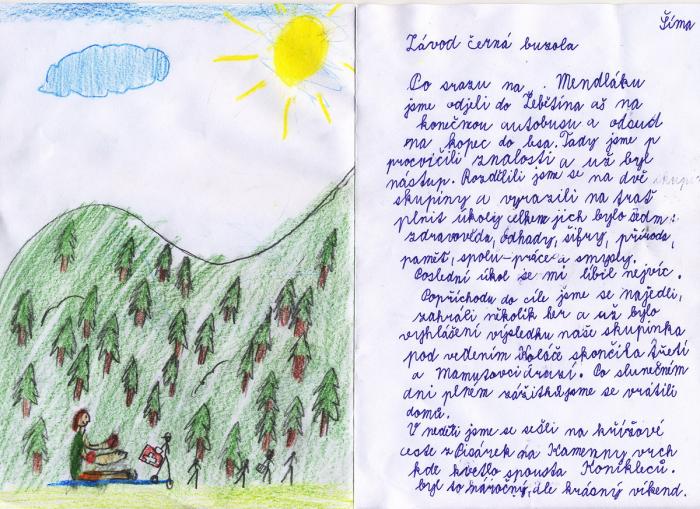 Šíma
Závod černá buzola
Po srazu na . Mendláku
jsme odjeli do Žebětína až na
konečnou autobusu a odsud
na kopec do lesa. Tady jsme p
procvičili znalosti a už byl
nástup. Rozdělili jsme se na dvě
skupiny a vyrazili na trať
plnit úkoly celkem jich bylo sedm:
zdravověda, odhady, šifry, příroda,
paměť, spolu-práce a smysly.
Poslední úkol se mi líbil nejvíc.
Popříchodu do cíle jsme se najedli,
zahráli několik her a už bylo
vyhlášení výsledků naše skupinka
pod vedením Koláče skončila třetí
a Mamutovci druzí. Po slunečném
dni plném zážitků jsme se vrátili
domů.
V neděli jsme se sešli na křížové
cestě z Pisárek na Kamenny vrch
kde kvetlo spousta Koniklecŭ.
byl to náročný, ale krásný víkend.